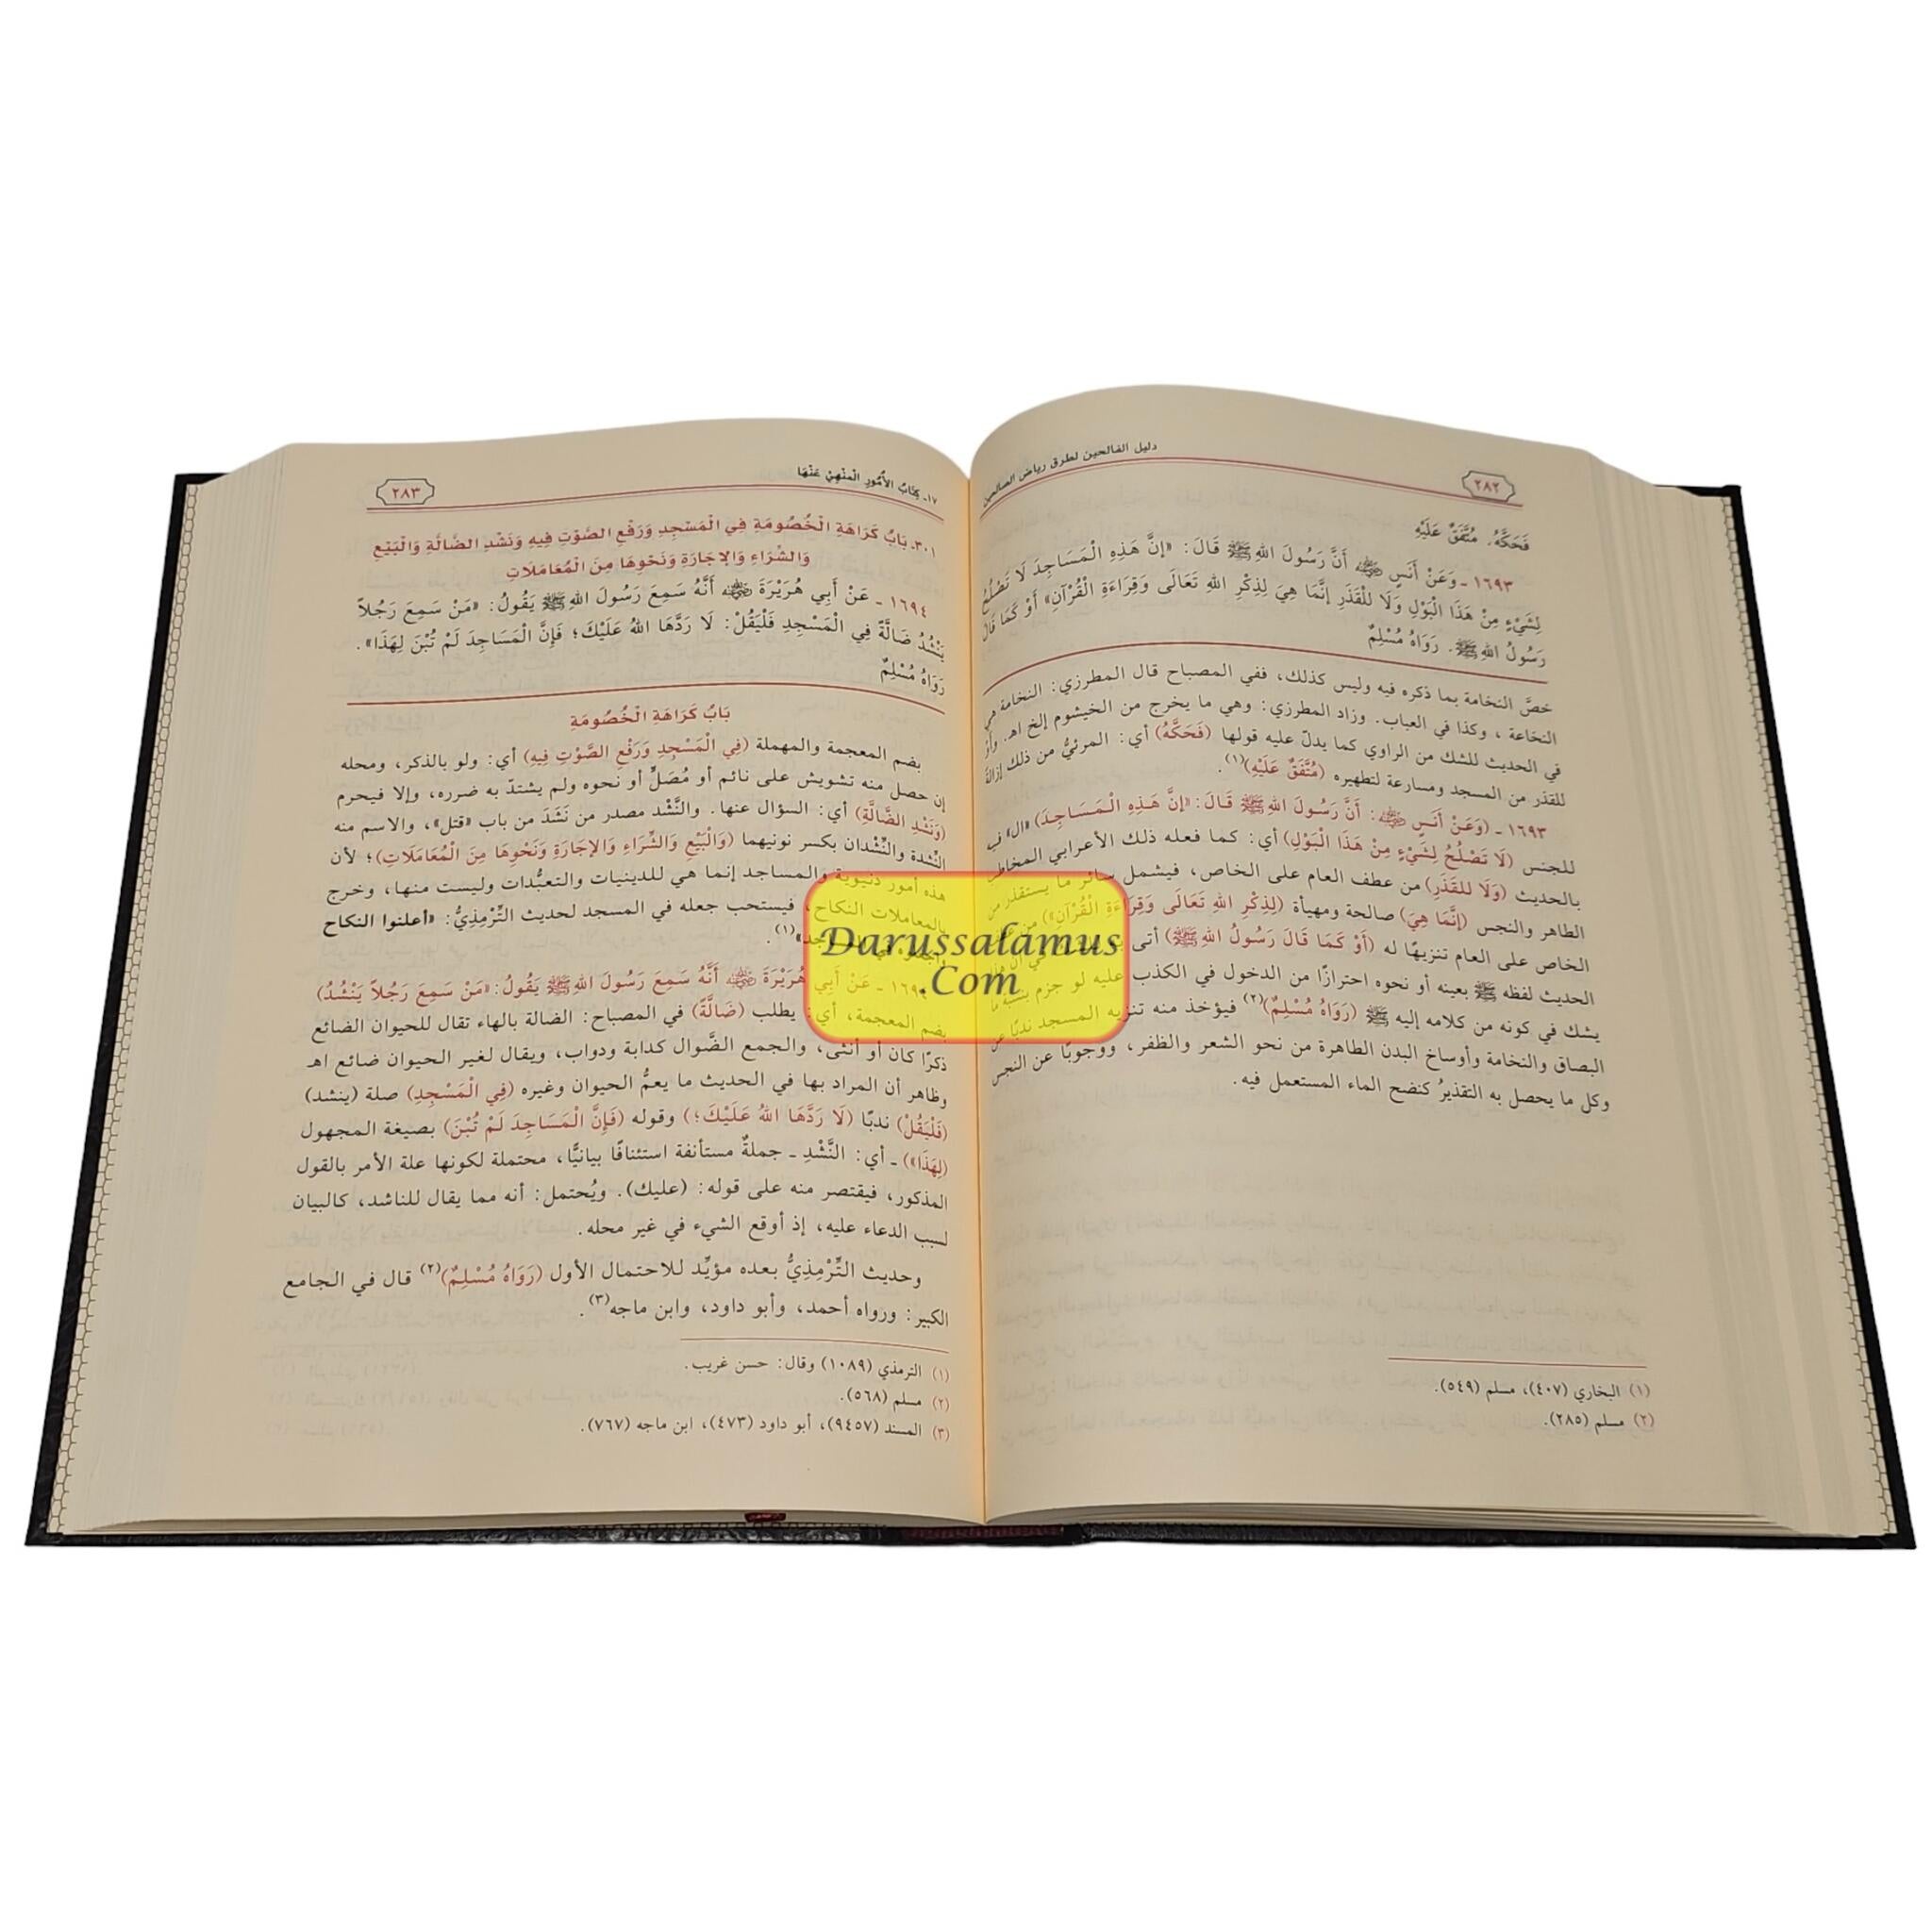 ٢٨٢
دليل الفالحين لطرق رياض الصالحين
فَحَكَّهُ. مُتَّفَقٌ عَلَيْهِ
١٦٩٣ - وَعَنْ أَنَسٍ رضي الله عنه أَنَّ رَسُولَ اللهِ ﷺ قَالَ: «إِنَّ هَذِهِ الْمَسَاجِدَ لَا تَصْلُحُ
لِشَيْءٍ مِنْ هَذَا الْبَوْلِ وَلَا لِلْقَذَرِ إِنَّمَا هِيَ لِذِكْرِ اللهِ تَعَالَى وَقِرَاءَةِ الْقُرْآنِ» أَوْ كَمَا قَالَ
رَسُولُ اللهِ ﷺ. رَوَاهُ مُسْلِمٌ
خصَّ النخامة بما ذكره فيه وليس كذلك، ففي المصباح قال المطرزي: النخامة هي
النخاعة، وكذا في العباب. وزاد المطرزي: وهي ما يخرج من الخيشوم إلخ اهـ. وأوْ
في الحديث للشك من الراوي كما يدلّ عليه قولها (فَحَكَّهُ) أي: المرئيُّ من ذلك إزالة
للقذر من المسجد ومسارعة لتطهيره (مُتَّفَقٌ عَلَيْهِ)(١).
١٦٩٣ - (وَعَنْ أَنَسٍ رضي الله عنه: أَنَّ رَسُولَ اللهِ ﷺ قَالَ: «إِنَّ هَـذِهِ الْـمَـسَـاجِـدَ) «ال» فيه
للجنس (لَا تَصْلُحُ لِشَيْءٍ مِنْ هَذَا الْبَوْلِ) أي: كما فعله ذلك الأعرابي المخاطب
بالحديث (وَلَا لِلقَذَرِ) من عطف العام على الخاص، فيشمل سائر ما يستقذر من
الطاهر والنجس (إِنَّمَا هِيَ) صالحة ومهيأة (لِذِكْرِ اللهِ تَعَالَى وَقِرَاءَةِ الْقُرْآنِ») من
الخاص على العام تنزيهًا له (أَوْ كَمَا قَالَ رَسُولُ اللهِ ﷺ) أتى
الحديث لفظه ﷺ بعينه أو نحوه احترازًا من الدخول في الكذب عليه لو جزم بنسبة ما
يشك في كونه من كلامه إليه ﷺ (رَوَاهُ مُسْلِمٌ)(٢) فيؤخذ منه تنزيه المسجد ندبًا عن
البصاق والنخامة وأوساخ البدن الطاهرة من نحو الشعر والظفر، ووجوبًا عن النجس
وكل ما يحصل به التقذيرُ كنضح الماء المستعمل فيه.
(١) البخاري (٤٠٧)، مسلم (٥٤٩).
(٢) مسلم (٢٨٥).
١٧- كِتَابُ الأُمُورِ الْمَنْهِيِّ عَنْهَا
٢٨٣
٣٠١- بَابُ كَرَاهَةِ الْخُصُومَةِ فِي الْمَسْجِدِ وَرَفْعِ الصَّوْتِ فِيهِ وَنَشْدِ الضَّالَّةِ وَالْبَيْعِ
وَالشِّرَاءِ وَالإِجَارَةِ وَنَحْوِهَا مِنَ الْمُعَامَلَاتِ
١٦٩٤ - عَنْ أَبِي هُرَيْرَةَ رضي الله عنه أَنَّهُ سَمِعَ رَسُولَ اللهِ ﷺ يَقُولُ: «مَنْ سَمِعَ رَجُلاً
يَنْشُدُ ضَالَّةً فِي الْمَسْجِدِ فَلْيَقُلْ: لَا رَدَّهَا اللهُ عَلَيْكَ؛ فَإِنَّ الْمَسَاجِدَ لَمْ تُبْنَ لِهَذَا».
رَوَاهُ مُسْلِمٌ
بَابُ كَرَاهَةِ الْخُصُومَةِ
بضم المعجمة والمهملة (فِي الْمَسْجِدِ وَرَفْعِ الصَّوْتِ فِيهِ) أي: ولو بالذكر، ومحله
إن حصل منه تشويش على نائم أو مُصَلٍّ أو نحوه ولم يشتدّ به ضرره، وإلا فيحرم
(وَنَشْدِ الضَّالَّةِ) أي: السؤال عنها. والنَّشْد مصدر من نَشَدَ من باب «قتل»، والاسم منه
النِّشدة والنِّشْدان بكسر نونيهما (وَالْبَيْعِ وَالشِّرَاءِ وَالإجَارَةِ وَنَحْوِهَا مِنَ الْمُعَامَلَاتِ)؛ لأن
هذه أمور دنيوية والمساجد إنما هي للدينيات والتعبُّدات وليست منها، وخرج
بالمعاملات النكاح، فيستحب جعله في المسجد لحديث التِّرْمِذِيُّ: «أعلنوا النكاح
واجعلوه في المساجد»(١).
١٦٩٤ - عَنْ أَبِي هُرَيْرَةَ رضي الله عنه أَنَّهُ سَمِعَ رَسُولَ اللهِ ﷺ يَقُولُ: «مَنْ سَمِعَ رَجُلاً يَنْشُدُ)
بضم المعجمة، أي: يطلب (ضَالَّةً) في المصباح: الضالة بالهاء تقال للحيوان الضائع
ذكرًا كان أو أنثى، والجمع الضَّوال كدابة ودواب، ويقال لغير الحيوان ضائع اهـ
وظاهر أن المراد بها في الحديث ما يعمُّ الحيوان وغيره (فِي الْمَسْجِدِ) صلة (ينشد)
(فَلْيَقُلْ) ندبًا (لَا رَدَّهَا اللهُ عَلَيْكَ؛) وقوله (فَإِنَّ الْمَسَاجِدَ لَمْ تُبْنَ) بصيغة المجهول
(لِهَذَا») - أي: النَّشْدِ - جملةٌ مستأنفة استئنافًا بيانيًّا، محتملة لكونها علة الأمر بالقول
المذكور، فيقتصر منه على قوله: (عليك). ويُحتمل: أنه مما يقال للناشد، كالبيان
لسبب الدعاء عليه، إذ أوقع الشيء في غير محله.
وحديث التِّرْمِذِيُّ بعده مؤيِّد للاحتمال الأول (رَوَاهُ مُسْلِمٌ)(٢) قال في الجامع
الكبير: ورواه أحمد، وأبو داود، وابن ماجه(٣).
(١) الترمذي (١٠٨٩) وقال: حسن غريب.
(٢) مسلم (٥٦٨).
(٣) المسند (٩٤٥٧)، أبو داود (٤٧٣)، ابن ماجه (٧٦٧).
Darussalamus
.Com